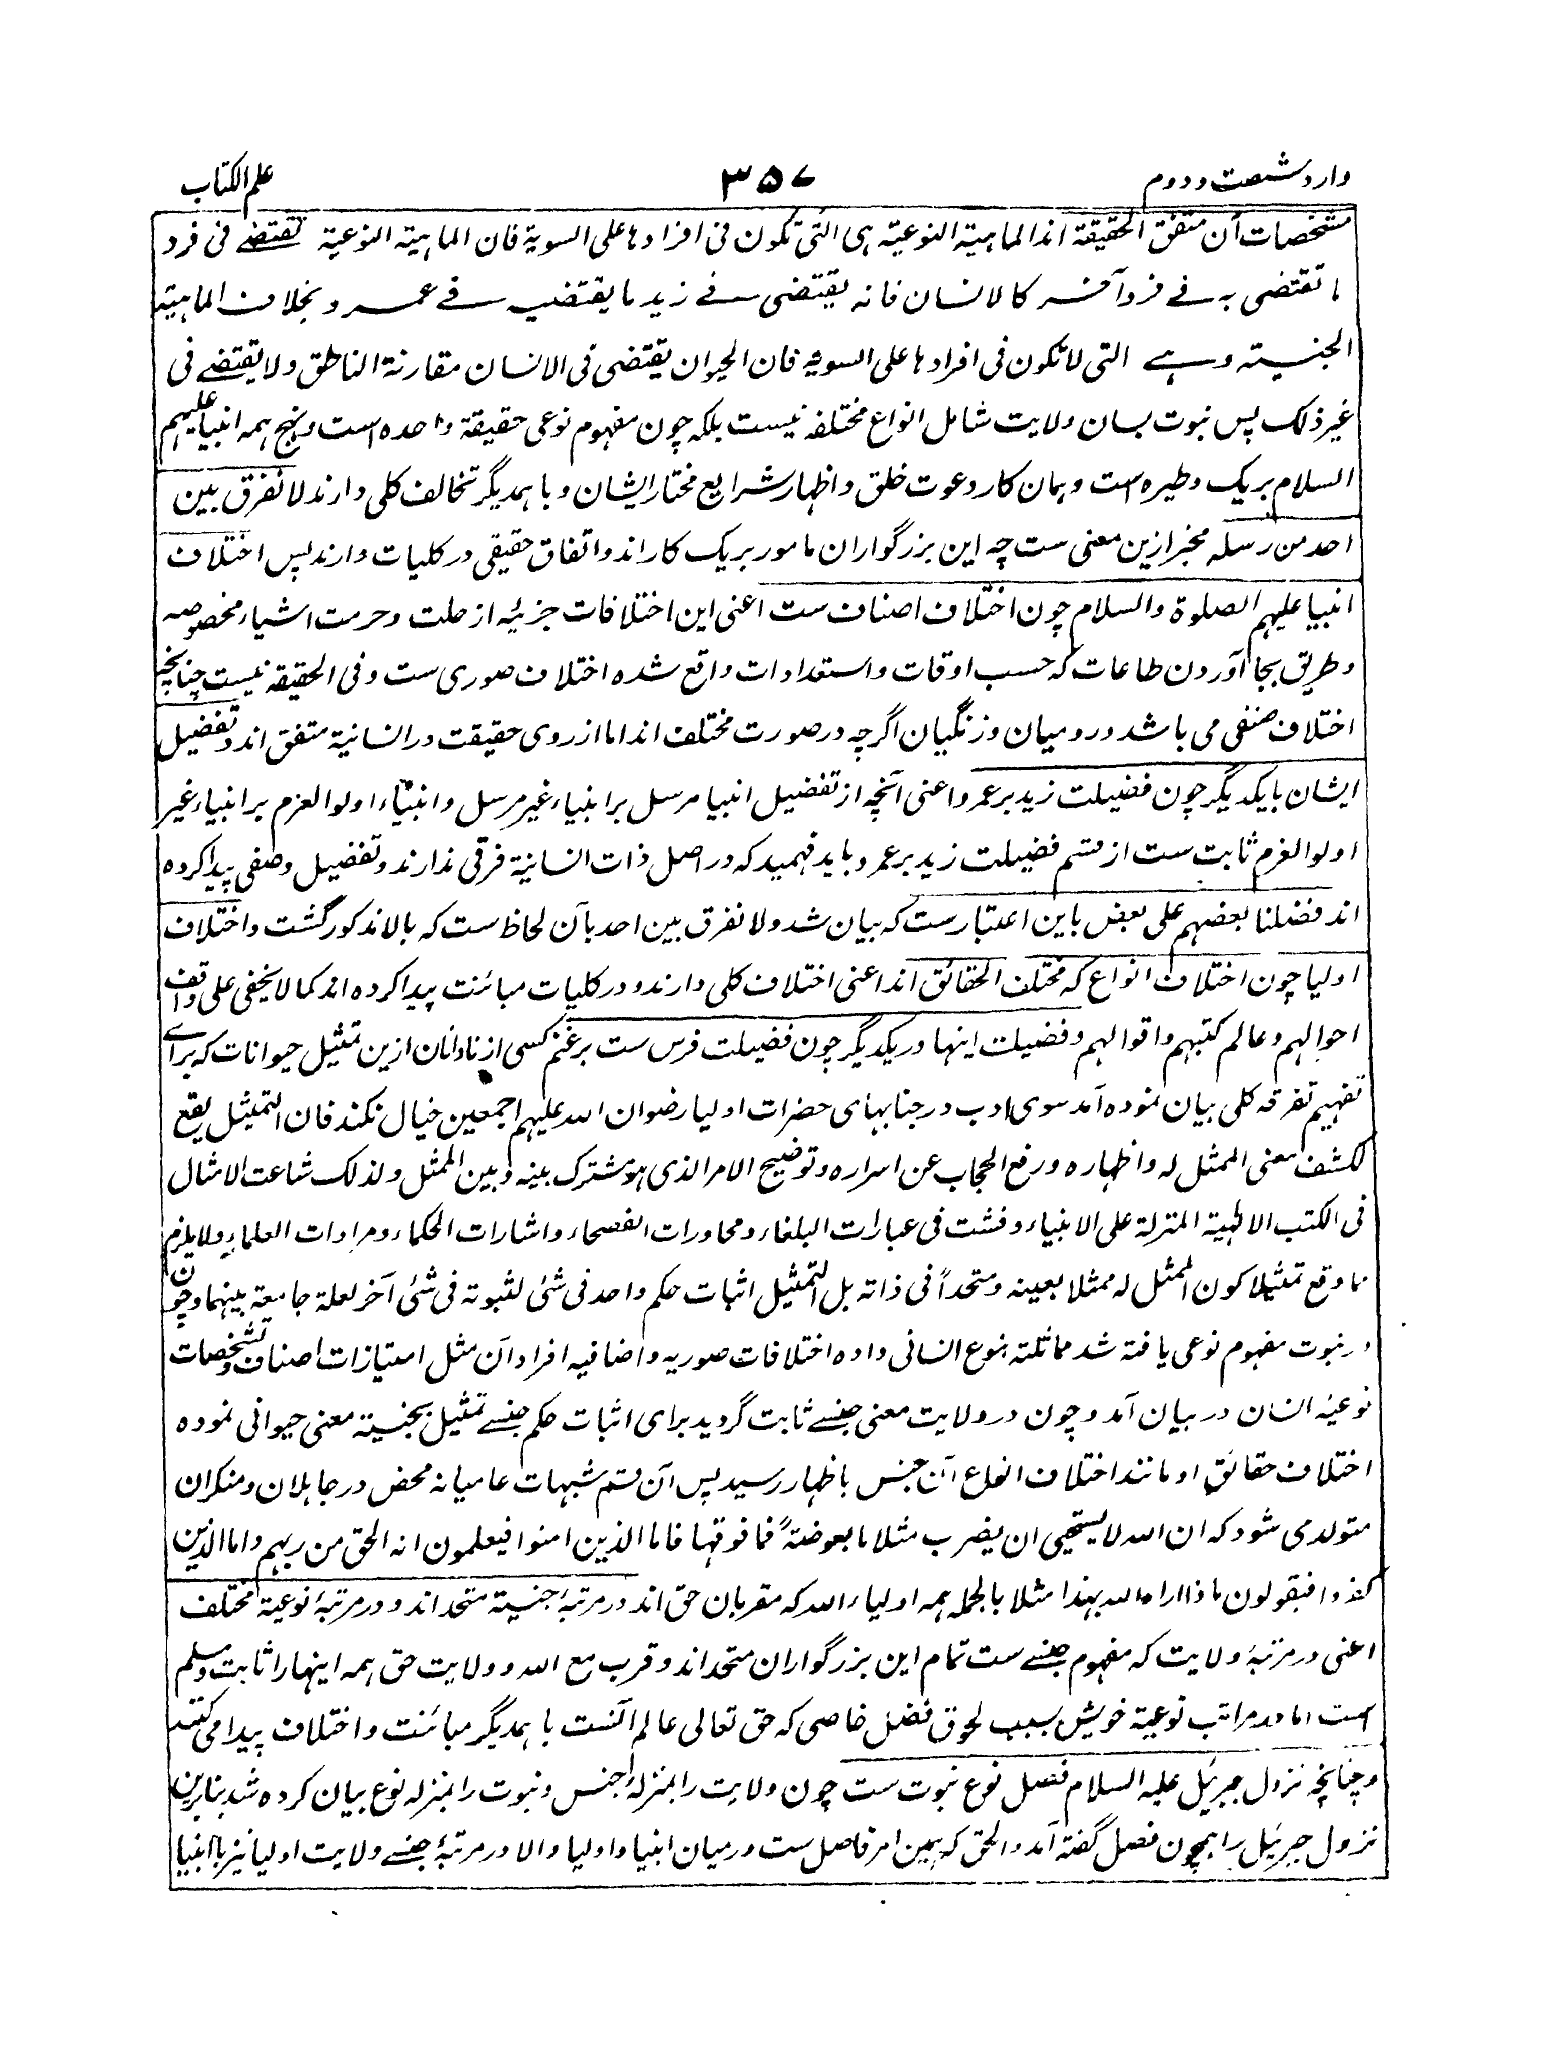 وارد شصت و دوم
۳۵۷
علم الکتاب
مشخصات آن متفق الحقیقة اند الماهیة النوعیة هی التی تکون فی افرادها علی السویة فان الماهیة النوعیة تقتضے فی فرد
ما تقتضی به فے فرد آخر کالانسان فانه یقتضی فے زید ما یقتضیه فے عمرو بخلاف الماهیة
الجنسیته وہے التی لا تکون فی افرادها علی السویه فان الحیوان یقتضی فی الانسان مقارنة الناطق ولا یقتضے فی
غیر ذلک پس نبوت بسان ولایت شامل انواع مختلفه نیست بلکه چون مفهوم نوعی حقیقة واحده است و نهج همه انبیا علیهم
السلام بریک وطیره است و همان کار دعوت خلق و اظهار شرایع مختار ایشان و باهمدیگر تخالف کلی دارند لا نفرق بین
احد من رسله مخبر ازین معنی ست چه این بزرگواران مامور بریک کار اند و اتفاق حقیقی در کلیات دارند پس اختلاف
انبیا علیهم الصلوة والسلام چون اختلاف اصناف ست اعنی این اختلافات جزئیه از حلت و حرمت اشیاء مخصوصه
و طریق بجا آوردن طاعات که حسب اوقات و استعدادات واقع شده اختلاف صوری ست و فی الحقیقة نیست چنانچه
اختلاف صنفی می باشد و رومیان و زنگیان اگرچه در صورت مختلف اند اما از روی حقیقت در انسانیة متفق اند و تفضیل
ایشان بایکدیگر چون فضیلت زید بر عمر و اعنی آنچه از تفضیل انبیا مرسل بر انبیاء غیر مرسل و انبیاء اولوالعزم بر انبیاء غیر
اولوالعزم ثابت ست از قسم فضیلت زید بر عمر و باید فهمید که در اصل ذات انسانیة فرقی ندارند و تفضیل وصفی پیدا کرده
اند فضلنا بعضهم علی بعض باین اعتبار ست که بیان شد ولا نفرق بین احد بآن لحاظ ست که بالا مذکور گشت و اختلاف
اولیا چون اختلاف انواع که مختلف الحقائق اند اعنی اختلاف کلی دارند و در کلیات مبائنت پیدا کرده اند کما لا یخفی علی واقف
احوالهم و عالم کتبهم و اقوالهم و فضیلت اینها در یکدیگر چون فضیلت فرس ست بر غنم کسی از نادانان ازین تمثیل حیوانات که برای
تفهیم تفرقه کلی بیان نموده آمد سوی ادب در جنابهای حضرات اولیا رضوان الله علیهم اجمعین خیال نکند فان التمثیل یقع
لکشف معنی الممثل له و اظهاره و رفع الحجاب عن اسراره و توضیح الامر الذی هو مشترک بینه و بین الممثل و لذلک شاعت الامثال
فی الکتب الالهیة المنزلة علی الانبیاء و فشت فی عبارات البلغاء و محاورات الفصحاء و اشارات الحکماء و مرادات العلماء و لا یلزم
مما وقع تمثیلا کون الممثل له ممثلا بعینه و متحداً فی ذاته بل التمثیل اثبات حکم واحد فی شئ لثبوته فی شئ آخر لعلة جامعة بینهما و چون
در نبوت مفهوم نوعی یافته شد مماثلته بنوع انسانی داده اختلافات صوریه و اضافیه افراد آن مثل امتیازات اصناف و تشخصات
نوعیۀ انسان در بیان آمد و چون در ولایت معنی جنسے ثابت گردید برای اثبات حکم جنسے تمثیل بجنسیة معنی حیوانی نموده
اختلاف حقائق او مانند اختلاف انواع آن جنس باظهار رسید پس آن قسم شبهات عامیانه محض در جاهلان و منکران
متولد می شود که ان الله لا یستحیی ان یضرب مثلا ما بعوضةً فما فوقها فاما الذین امنوا فیعلمون انه الحق من ربهم و اما الذین
کفروا فیقولون ماذا اراد الله بهذا مثلا بالجمله همه اولیاء الله که مقربان حق اند در مرتبۀ جنسیة متحد اند و در مرتبۀ نوعیة مختلف
اعنی در مرتبۀ ولایت که مفهوم جنسے ست تمام این بزرگواران متحد اند و قرب مع الله و ولایت حق همه اینها را ثابت و مسلم
است اما در مراتب نوعیة خویش بسبب لحوق فضل خاصی که حق تعالی عالم آنست باهمدیگر مبائنت و اختلاف پیدا می کنند
و چنانچه نزول جبرئیل علیه السلام فصل نوع نبوت ست چون ولایت را بمنزلۀ جنس و نبوت را بمنزله نوع بیان کرده شد بنابرین
نزول جبرئیل را همچون فصل گفته آمد و الحق که همین امر فاصل ست در میان انبیا و اولیا و الا در مرتبۀ جنسے ولایت اولیا نیز با انبیا